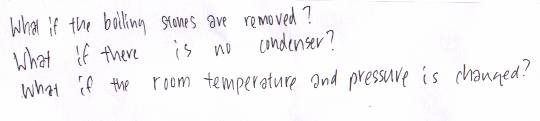 What if the boiling stones are removed?
What if there is no condenser?
What if the room temperature and pressure is changed?